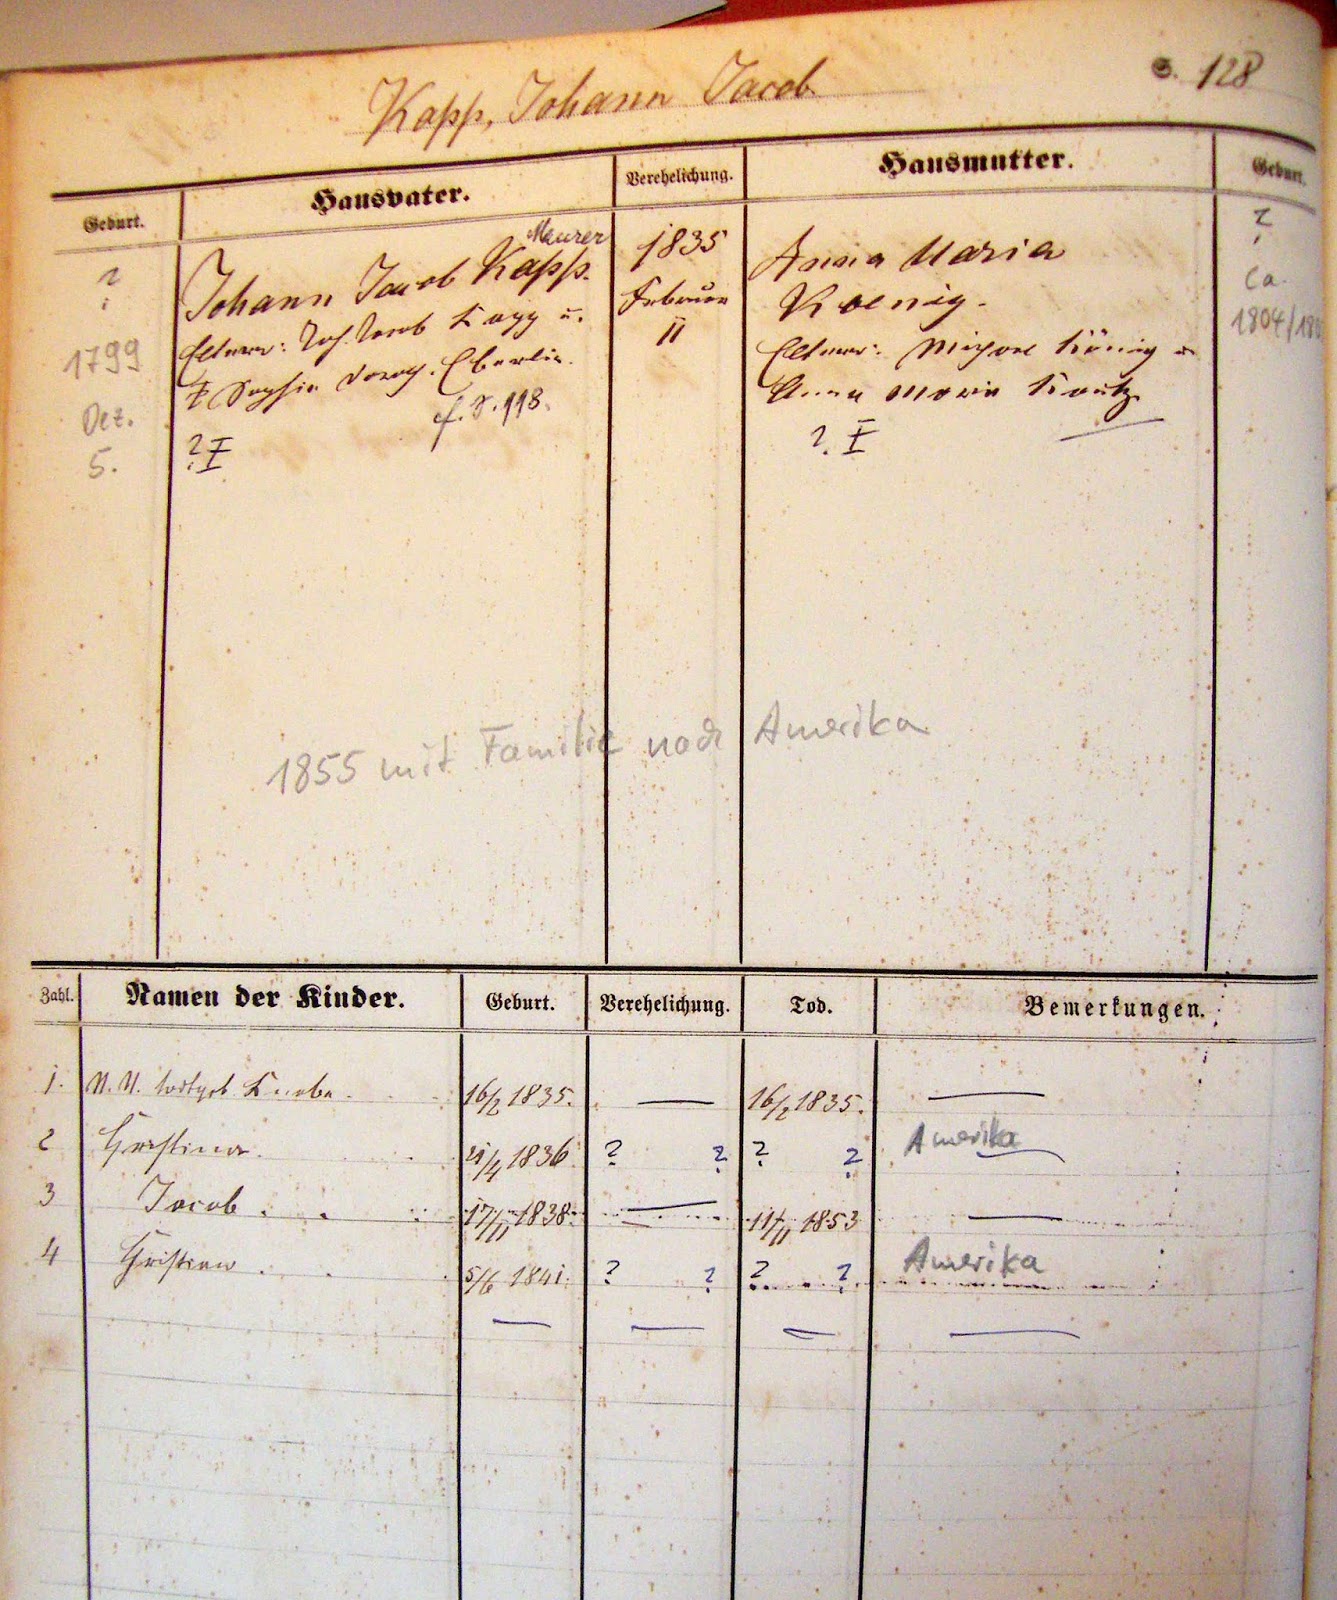 Kapp, Johann Jacob
S. 128
Geburt. Hausvater. Verehelichung. Hausmutter. Geburt.
? Johann Jacob Kapp. Maurer 1835 Anna Maria ?
1799 Eltern: Joh. Jacob Kapp u. Februar Koenig. Ca.
Dez. Sophia Doroth. Eberlin. 11 Eltern: König u 1804/
5. cf. S. 118. Anna Maria
? ?
1855 mit Familie nach Amerika
Zahl. Namen der Kinder. Geburt. Verehelichung. Tod. Bemerkungen.
1. N. N. todtgeb. Knabe. 16/2 1835. — 16/2 1835. —
2 Christina. 21/4 1836 ? ? ? ? Amerika
3 Jacob . . 17/11 1838. — 11/11 1853 —
4 Christian . . 5/6 1841. ? ? ? ? Amerika
— — — —